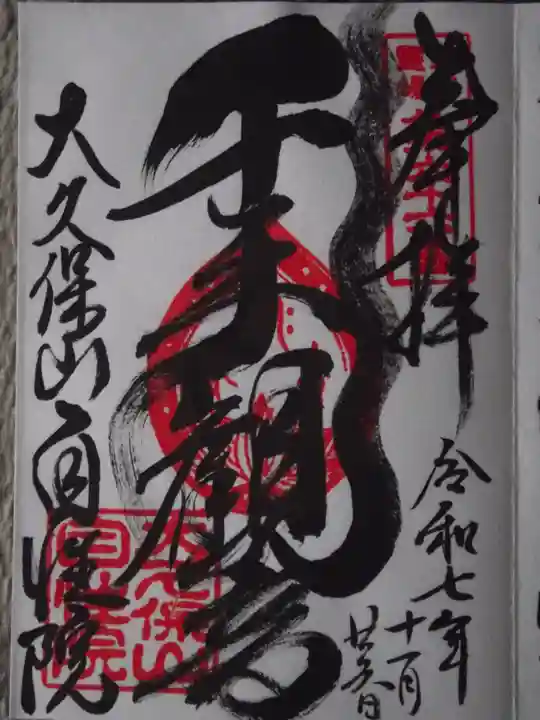 奉拝
令和七年
十一月
千手観音
大久保山自性院
大久保山
自性院